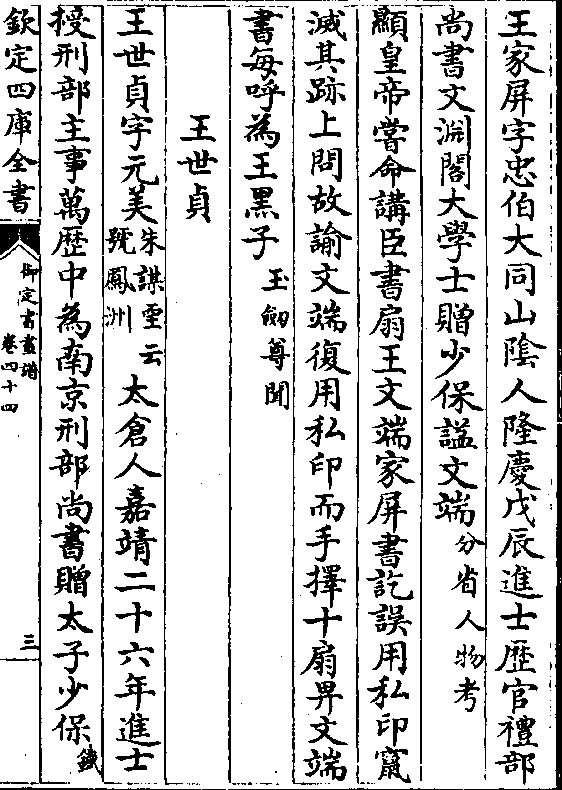 王家屏字忠伯大同山陰人隆慶戊辰進士歴官禮部
尚書文淵閣大學士贈少保諡文端分省人物考
顯皇帝嘗命講臣書扇王文端家屏書訖誤用私印竄
滅其跡上問故諭文端復用私印而手擇十扇畀文端
書每呼為王黑子玉劒尊聞
王世貞
王世貞字元美朱謀垔云號鳳洲太倉人嘉靖二十六年進士
授刑部主事萬歴中為南京刑部尚書贈太子少保
欽定四庫全書
御定書畫譜
卷四十四
三